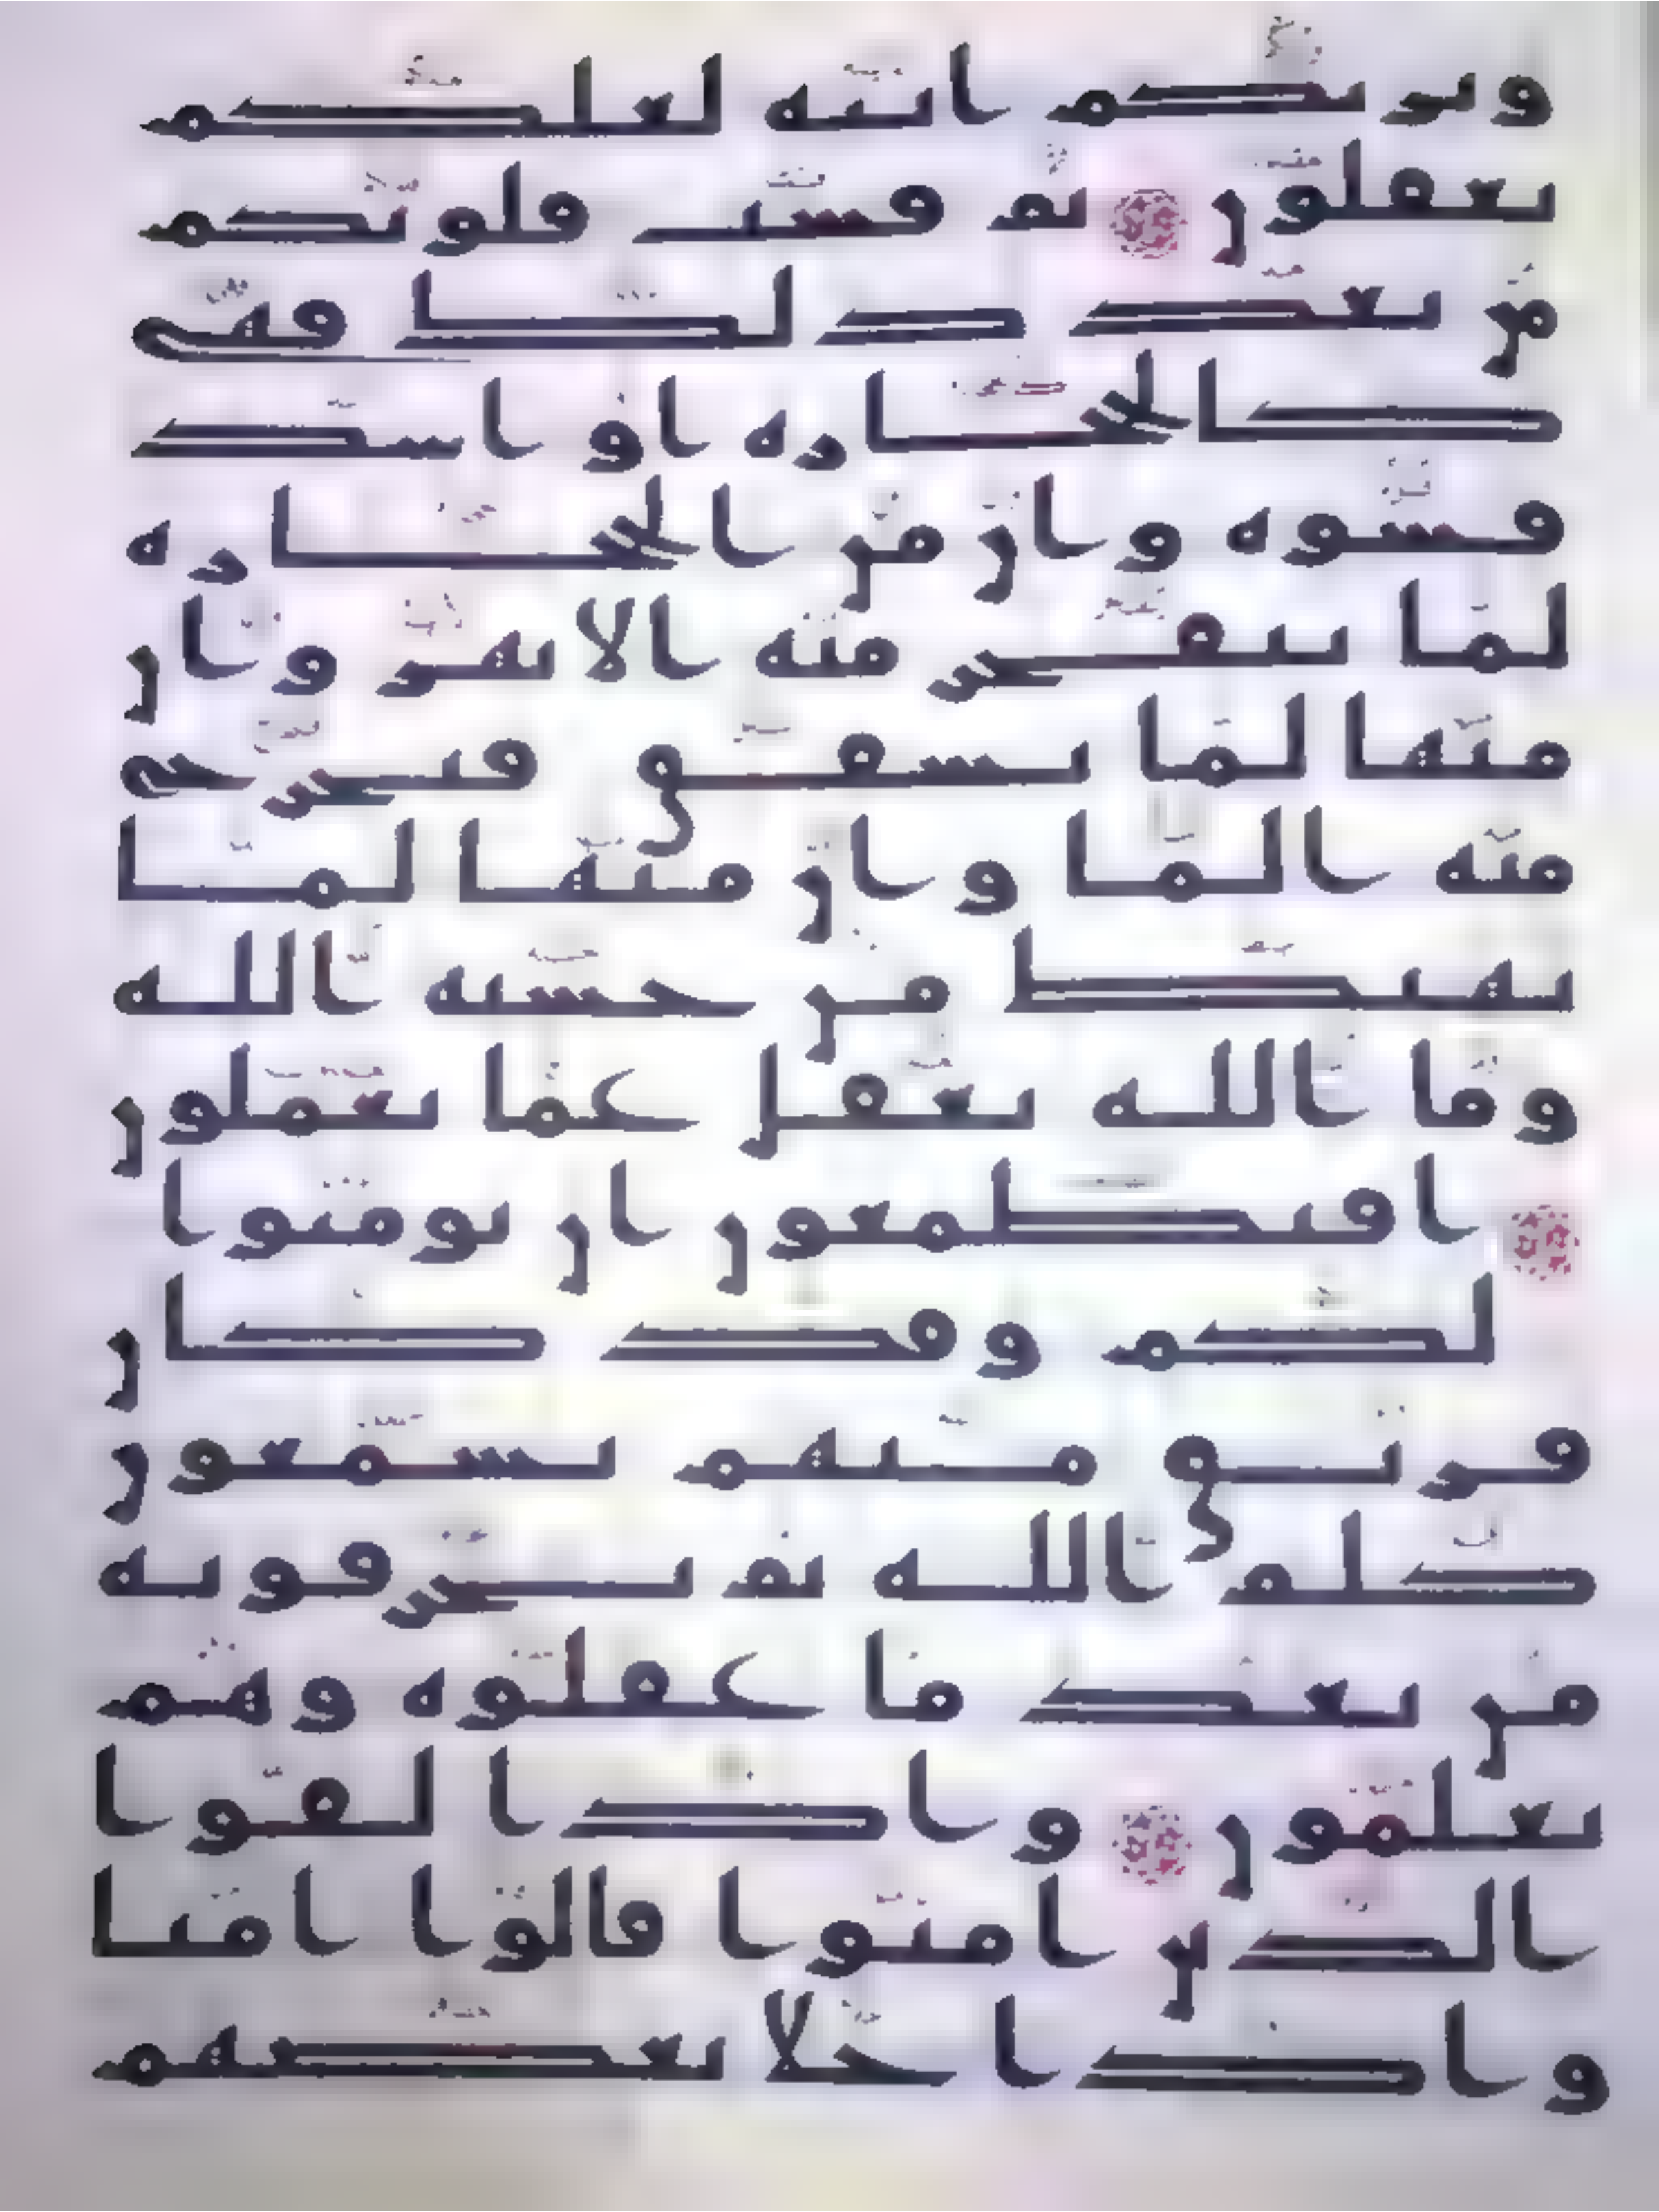 ويريكم ايته لعلكم
تعقلون ثم قست قلوبكم
من بعد ذلك فهي
كالحجارة او اشد
قسوة وان من الحجارة
لما يتفجر منه الانهر وان
منها لما يشقق فيخرج
منه الما وان منها لما
يهبط من خشية الله
وما الله بغفل عما تعملون
افتطمعون ان يومنوا
لكم وقد كان
فريق منهم يسمعون
كلم الله ثم يحرفونه
من بعد ما عقلوه وهم
يعلمون واذا لقوا
الذين امنوا قالوا امنا
واذا خلا بعضهم